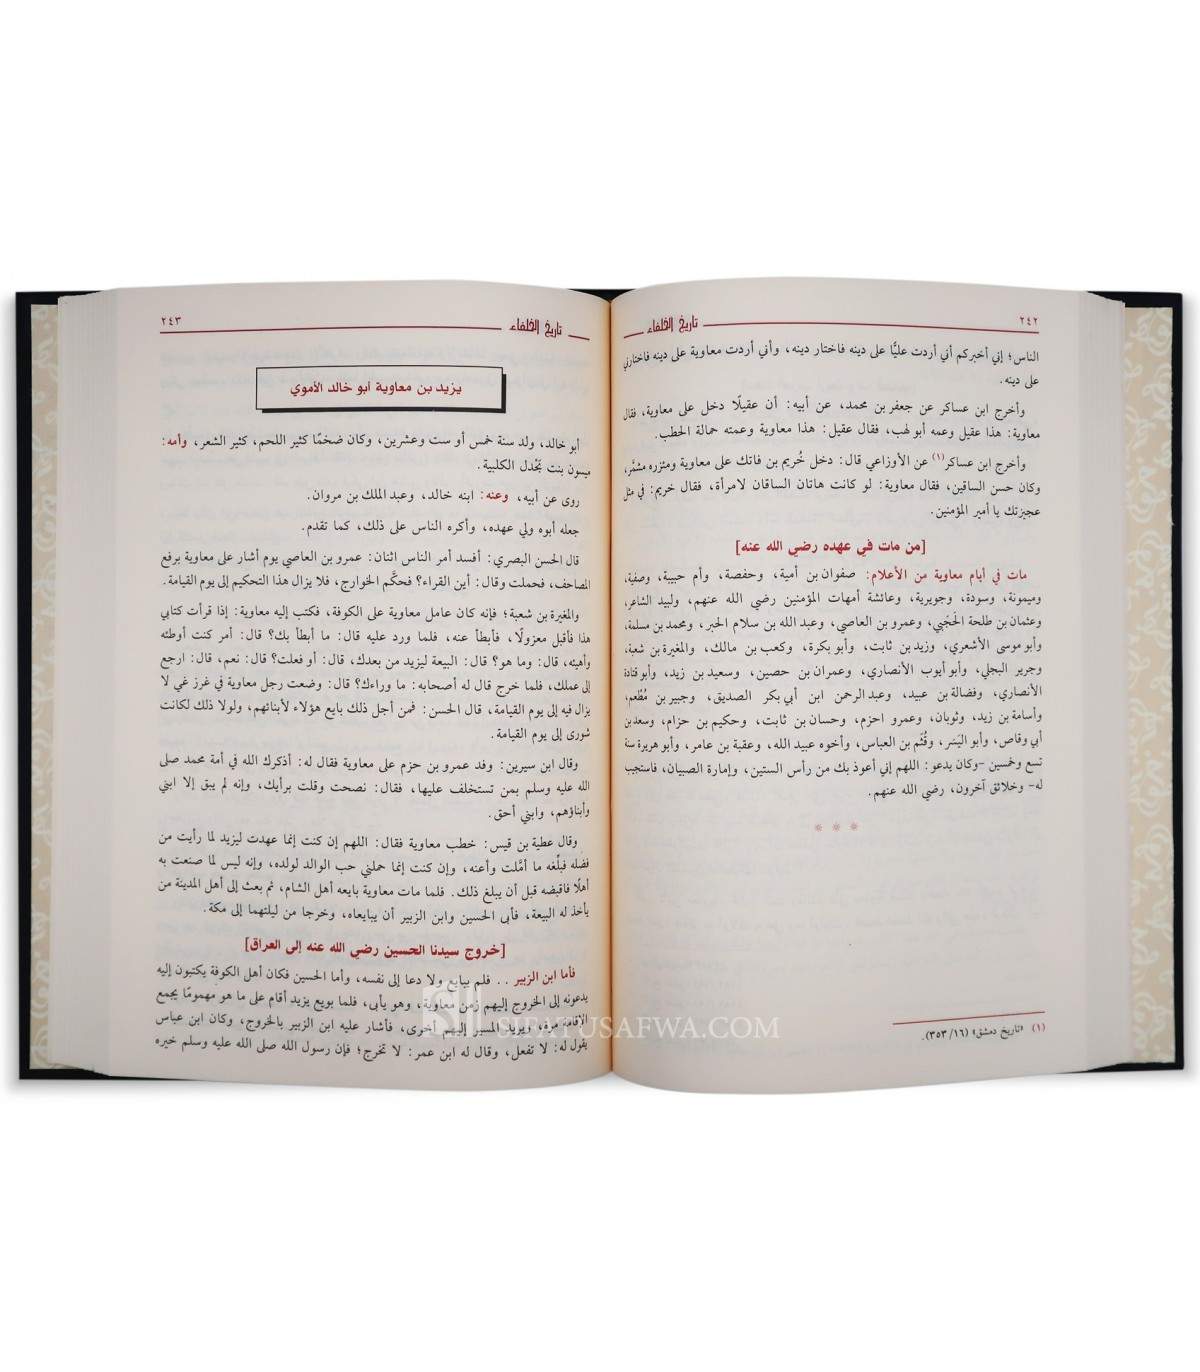 ٢٤٢
تاريخ الخلفاء
الناس؛ إني أخبركم أني أردت عليًّا على دينه فاختار دينه، وأني أردت معاوية على دينه فاختارني
على دينه.
وأخرج ابن عساكر عن جعفر بن محمد، عن أبيه: أن عقيلًا دخل على معاوية، فقال
معاوية: هذا عقيل وعمه أبو لهب، فقال عقيل: هذا معاوية وعمته حمالة الحطب.
وأخرج ابن عساكر(١) عن الأوزاعي قال: دخل خُريم بن فاتك على معاوية ومئزره مشمَّر،
وكان حسن الساقين، فقال معاوية: لو كانت هاتان الساقان لامرأة، فقال خريم: في مثل
عجيزتك يا أمير المؤمنين.
[من مات في عهده رضي الله عنه]
مات في أيام معاوية من الأعلام: صفوان بن أمية، وحفصة، وأم حبيبة، وصفية،
وميمونة، وسودة، وجويرية، وعائشة أمهات المؤمنين رضي الله عنهم، ولبيد الشاعر،
وعثمان بن طلحة الحَجَبي، وعمرو بن العاصي، وعبد الله بن سلام الحبر، ومحمد بن مسلمة،
وأبو موسى الأشعري، وزيد بن ثابت، وأبو بكرة، وكعب بن مالك، والمغيرة بن شعبة،
وجرير البجلي، وأبو أيوب الأنصاري، وعمران بن حصين، وسعيد بن زيد، وأبو قتادة
الأنصاري، وفضالة بن عبيد، وعبد الرحمن ابن أبي بكر الصديق، وجبير بن مُطْعم،
وأسامة بن زيد، وثوبان، وعمرو احزم، وحسان بن ثابت، وحكيم بن حزام، وسعد بن
أبي وقاص، وأبو اليَسَر، وقُثَم بن العباس، وأخوه عبيد الله، وعقبة بن عامر، وأبو هريرة سنة
تسع وخمسين -وكان يدعو: اللهم إني أعوذ بك من رأس الستين، وإمارة الصبيان، فاستجيب
له- وخلائق آخرون، رضي الله عنهم.
* * *
(١) «تاريخ دمشق» (١٦/ ٣٥٣).
تاريخ الخلفاء
٢٤٣
يزيد بن معاوية أبو خالد الأموي
أبو خالد، ولد سنة خمس أو ست وعشرين، وكان ضخمًا كثير اللحم، كثير الشعر، وأمه:
ميسون بنت بَحْدل الكلبية.
روى عن أبيه، وعنه: ابنه خالد، وعبد الملك بن مروان.
جعله أبوه ولي عهده، وأكره الناس على ذلك، كما تقدم.
قال الحسن البصري: أفسد أمر الناس اثنان: عمرو بن العاصي يوم أشار على معاوية برفع
المصاحف، فحملت وقال: أين القراء؟ فحكَّم الخوارج، فلا يزال هذا التحكيم إلى يوم القيامة.
والمغيرة بن شعبة؛ فإنه كان عامل معاوية على الكوفة، فكتب إليه معاوية: إذا قرأت كتابي
هذا فأقبل معزولًا، فأبطأ عنه، فلما ورد عليه قال: ما أبطأ بك؟ قال: أمر كنت أوطئه
وأهيئه، قال: وما هو؟ قال: البيعة ليزيد من بعدك، قال: أو فعلت؟ قال: نعم، قال: ارجع
إلى عملك، فلما خرج قال له أصحابه: ما وراءك؟ قال: وضعت رجل معاوية في غرز غي لا
يزال فيه إلى يوم القيامة، قال الحسن: فمن أجل ذلك بايع هؤلاء لأبنائهم، ولولا ذلك لكانت
شورى إلى يوم القيامة.
وقال ابن سيرين: وفد عمرو بن حزم على معاوية فقال له: أذكرك الله في أمة محمد صلى
الله عليه وسلم بمن تستخلف عليها، فقال: نصحت وقلت برأيك، وإنه لم يبق إلا ابني
وأبناؤهم، وابني أحق.
وقال عطية بن قيس: خطب معاوية فقال: اللهم إن كنت إنما عهدت ليزيد لما رأيت من
فضله فبلِّغه ما أمَّلت وأعنه، وإن كنت إنما حملني حب الوالد لولده، وإنه ليس لما صنعت به
أهلًا فاقبضه قبل أن يبلغ ذلك. فلما مات معاوية بايعه أهل الشام، ثم بعث إلى أهل المدينة من
يأخذ له البيعة، فأبى الحسين وابن الزبير أن يبايعاه، وخرجا من ليلتهما إلى مكة.
[خروج سيدنا الحسين رضي الله عنه إلى العراق]
فأما ابن الزبير .. فلم يبايع ولا دعا إلى نفسه، وأما الحسين فكان أهل الكوفة يكتبون إليه
يدعونه إلى الخروج إليهم زمن معاوية، وهو يأبى، فلما بويع يزيد أقام على ما هو مهمومًا يجمع
الإقامة مرة، ويريد المسير إليهم أخرى، فأشار عليه ابن الزبير بالخروج، وكان ابن عباس
يقول له: لا تفعل، وقال له ابن عمر: لا تخرج؛ فإن رسول الله صلى الله عليه وسلم خيره
SIFATUSAFWA.COM